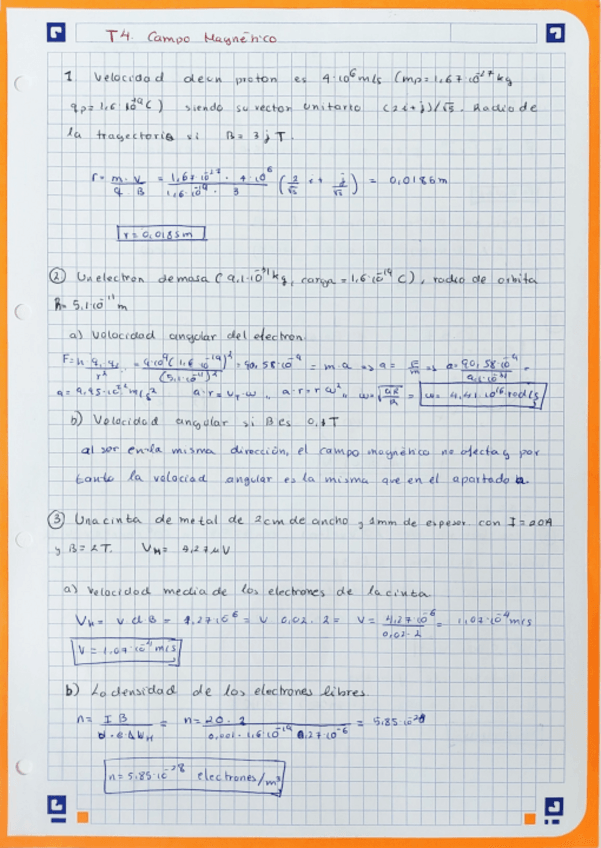 T4. Campo Magnético
1 Velocidad de un proton es 4·10⁶ m/s (mp=1,67·10⁻²⁷ kg
qp=1,6·10⁻¹⁹ C) siendo su vector unitario (2i+j)/√5. Radio de
la trayectoria si B= 3j T.
r= m·v / q·B = 1,67·10⁻²⁷ · 4·10⁶ / 1,6·10⁻¹⁹ · 3 (2/√5 i + j/√5) = 0,0186m
r=0,0185m
② Un electron de masa (9,1·10⁻³¹ kg, carga = 1,6·10⁻¹⁹ C), radio de orbita
R= 5,1·10⁻¹¹ m
a) Velocidad angular del electron.
F=k q₁ q₂ / r² = 9·10⁹ (1,6·10⁻¹⁹)² / (5,1·10⁻¹¹)² = 90,58·10⁻⁹ = m·a => a= F/m => a= 90,58·10⁻⁹ / 9,1·10⁻³¹ =
a= 9,95·10²² m/s² w= 4,41·10¹⁶ rad/s
b) Velocidad angular si B es 0,1T
al ser en la misma dirección, el campo magnético no afecta y por
tanto la velociad angular es la misma que en el apartado a.
③ Una cinta de metal de 2cm de ancho y 1mm de espesor con I=20A
y B=2T. V_H= 4,27μV
a) Velocidad media de los electrones de la cinta
V_H= v d B = 4,27·10⁻⁶ = v 0,02 · 2 = v= 4,27·10⁻⁶ / 0,02·2 = 1,07·10⁻⁴ m/s
V = 1,07·10⁻⁴ m/s
b) La densidad de los electrones libres.
n= I B / d·e·ΔV_H = n= 20·2 / 0,001·1,6·10⁻¹⁹ 4,27·10⁻⁶ = 5,85·10⁻²⁸
n=5,85·10⁻²⁸ electrones/m³